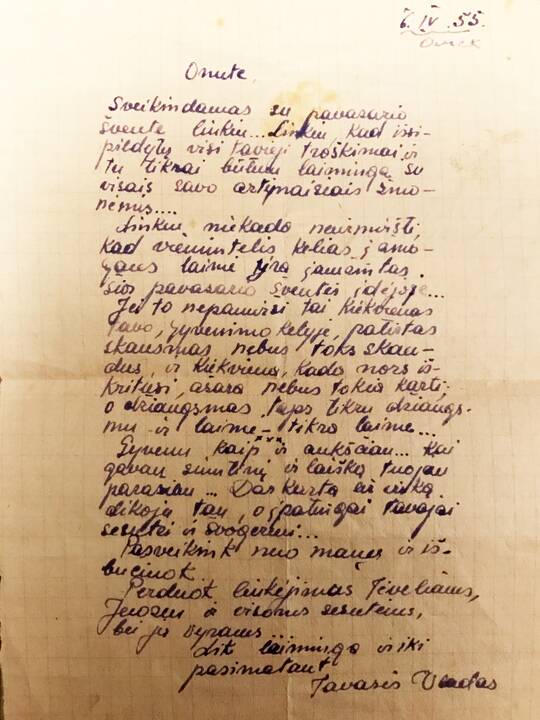 6. IV. 55.
Omsk
Onute,
Sveikindamas su pavasario
švente linkiu... Linkiu, kad išsi-
pildytų visi tavieji troškimai ir
tu tikrai būtum laiminga su
visais savo artymaisiais žmo-
nėmis....
Linkiu niekado neužmiršti,
kad vienintelis kelias į žmo-
gaus laimę yra įamžintas
šios pavasario šventės idėjoje...
Jei to nepamirši tai kiekvienas
tavo, gyvenimo kelyje, patirtas
skausmas nebus toks skau-
dus, ir kiekviena, kada nors iš-
kritusi, ašara nebus tokia karti,
o džiaugsmas taps tikru džiaugs-
mu ir laimė – tikra laime...
Gyvenu kaip ir aukščiau... Kai
gavau siuntinį ir laišką tuojau
parašiau... Dar kartą už viską
dėkoju tau, o ypatingai tavajai
sesutei ir švogeriui...
Pasveikink nuo manęs ir iš-
bučiuok
Perduok linkėjimas Tėveliams,
Juozui ir visoms sesutėms,
bei jų vyrams...
Lik laiminga ir iki
pasimatant
Tavasis Vladas